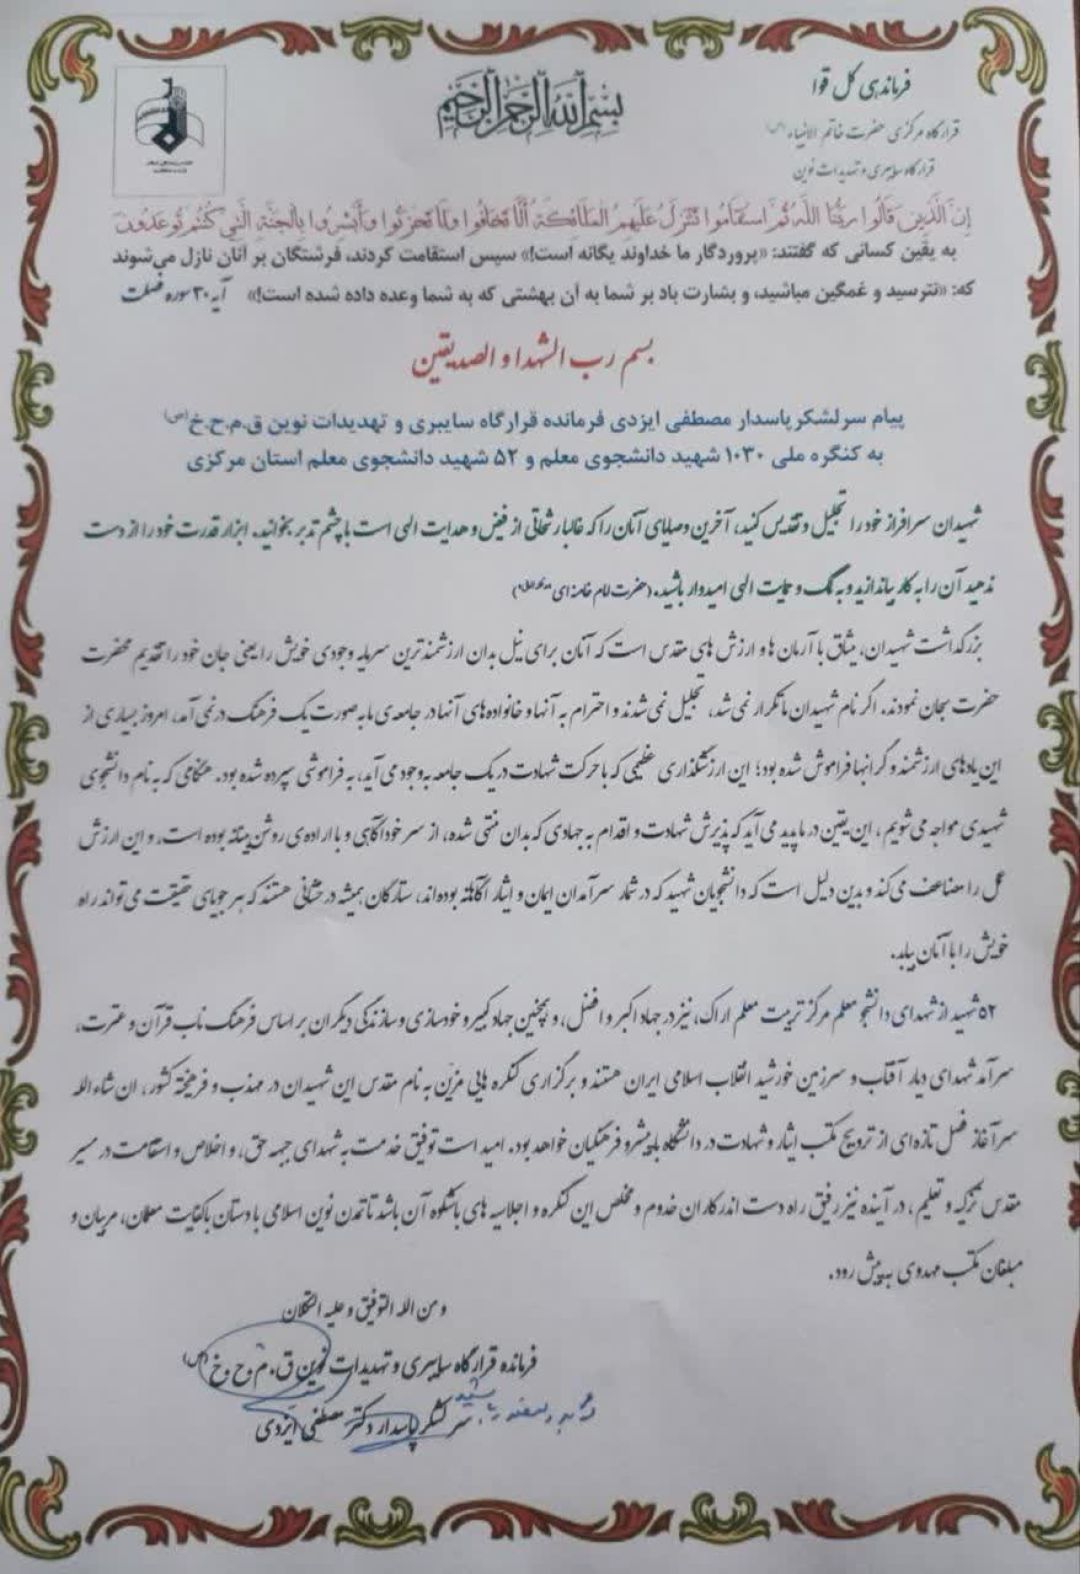 فرماندهی کل قوا
بسم الله الرحمن الرحیم
قرارگاه مرکزی حضرت خاتم الانبیاء (ص)
قرارگاه سایبری و تهدیدات نوین
إن الذین قالوا ربنا الله ثم استقاموا تتنزل علیهم الملائکة ألا تخافوا ولا تحزنوا وأبشروا بالجنة التی کنتم توعدون
به یقین کسانی که گفتند: «پروردگار ما خداوند یگانه است!» سپس استقامت کردند، فرشتگان بر آنان نازل می‌شوند
که: «نترسید و غمگین مباشید، و بشارت باد بر شما به آن بهشتی که به شما وعده داده شده است!» آیه ۳۰ سوره فصلت
بسم رب الشهدا و الصدیقین
پیام سرلشکر پاسدار مصطفی ایزدی فرمانده قرارگاه سایبری و تهدیدات نوین ق.م.ح.خ (ص)
به کنگره ملی ۱۰۳۰ شهید دانشجوی معلم و ۵۲ شهید دانشجوی معلم استان مرکزی
شهیدان سرافراز خود را تجلیل و تقدیس کنید، آخرین وصایای آنان را که غالبا رشحاتی از فیض و هدایت الهی است با چشم تدبر بخوانید. ابزار قدرت خود را از دست
ندهید آن را به کار بیاندازید و به کمک و حمایت الهی امیدوار باشید. (حضرت امام خامنه ای
بزرگداشت شهیدان، میثاق با آرمان ها و ارزش های مقدس است که آنان برای نیل بدان ارزشمندترین سرمایه وجودی خویش را یعنی جان خود را تقدیم محضرت
حضرت سبحان نمودند. اگر نام شهیدان ما تکرار نمی شد، تجلیل نمی شدند و احترام به آنها و خانواده های آنها در جامعه ی ما به صورت یک فرهنگ در نمی آمد، امروز بسیاری از
این یادهای ارزشمند و گرانبها فراموش شده بود؛ این ارزشگذاری عظیمی که با حرکت شهادت در یک جامعه به وجود می آید، به فراموشی سپرده شده بود. هنگامی که به نام دانشجوی
شهیدی مواجه می شویم، این یقین در ما پدید می آید که پذیرش شهادت و اقدام به جهادی که بدان منتهی شده، از سر خودآگاهی و با اراده ی روشن بینانه بوده است، و این ارزش
عمل را مضاعف می کند و بدین دلیل است که دانشجویان شهید که در شمار سرآمدان ایمان و ایثار آگاهانه بوده اند، ستارگان همیشه درخشانی هستند که هر جویای حقیقت می تواند راه
خویش را با آنان بیابد.
۵۲ شهید از شهدای دانشجو معلم مرکز تربیت معلم اراک، نیز در جهاد اکبر و افضل، و همچنین جهاد کبیر و خودسازی و سازندگی دیگران بر اساس فرهنگ ناب قرآن و عترت،
سرآمد شهدای دیار آفتاب و سرزمین خورشید انقلاب اسلامی ایران هستند و برگزاری کنگره هایی مزین به نام مقدس این شهیدان در مهذب و فرهیخته کشور، ان شاء الله
سرآغاز فصل تازه ای از ترویج مکتب ایثار و شهادت در دانشگاه پیشرو فرهنگیان خواهد بود. امید است توفیق خدمت به شهدای جبهه حق، و اخلاص و استقامت در مسیر
مقدس تزکیه و تعلیم، در آینده نیز رفیق راه دست اندرکاران خدوم و مخلص این کنگره و اجلاسیه های باشکوه آن باشد تا تمدن نوین اسلامی با دستان باکفایت معلمان، مربیان و
مبلغان مکتب مهدوی به پیش رود.
و من الله التوفیق و علیه التکلان
فرمانده قرارگاه سایبری و تهدیدات نوین ق.م.ح.خ (ص)
سرلشکر پاسدار دکتر مصطفی ایزدی